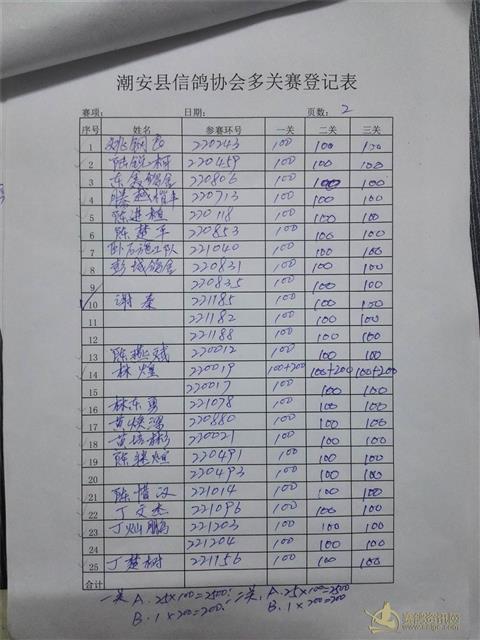 潮安县信鸽协会多关赛登记表
赛项: 日期: 页数: 2
序号 姓名 参赛环号 一关 二关 三关
1 220243 100 100 100
2 220459 100 100 100
3 220806 100 100 100
4 220713 100 100 100
5 220118 100 100 100
6 陈楚平 220853 100 100 100
7 221040 100 100 100
8 彭城鸽舍 220831 100 100 100
9 220835 100 100 100
10 谢 221185 100 100 100
11 221182 100 100 100
12 221188 100 100 100
13 220012 100 100 100
14 林煌 220019 100+200 100+200 100+200
15 220017 100 100 100
16 林东勇 221078 100 100 100
17 黄焕鸿 220880 100 100 100
18 黄培彬 220021 100 100 100
19 220491 100 100 100
20 220493 100 100 100
21 陈惜汉 221014 100 100 100
22 丁文杰 221096 100 100 100
23 丁灿鹏 221203 100 100 100
24 221204 100 100 100
25 丁楚树 221156 100 100 100
合计
一关 A. 25×100=2500. 二关. A. 25×100=2500
B. 1×200=200. B. 1×200=200
赛鸽资讯网